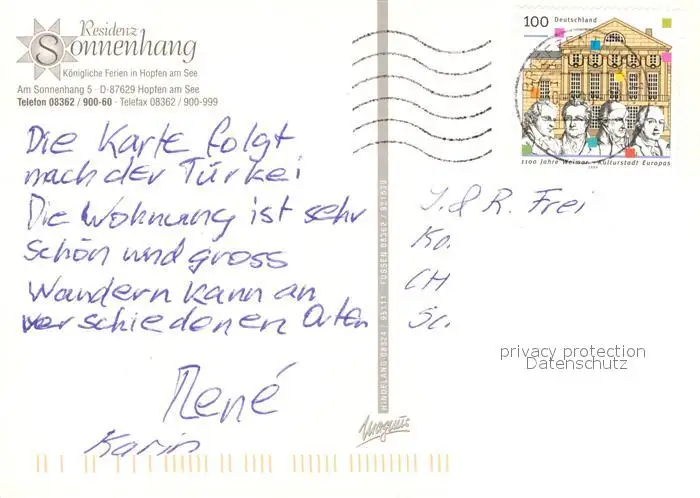 Residenz
Sonnenhang
Königliche Ferien in Hopfen am See
Am Sonnenhang 5 · D-87629 Hopfen am See
Telefon 08362 / 900-60 · Telefax 08362 / 900-999
Die Karte folgt
nach der Türkei
Die Wohnung ist sehr
schön und gross
Wandern kann an
verschiedenen Orten
René
Karin
HINDELANG 08324 / 95311 FÜSSEN 08362 / 921639
Magnus
100 Deutschland
1100 Jahre Weimar – Kulturstadt Europas
1999
J. & R. Frei
Ko.
CH
Sc.
privacy protection
Datenschutz